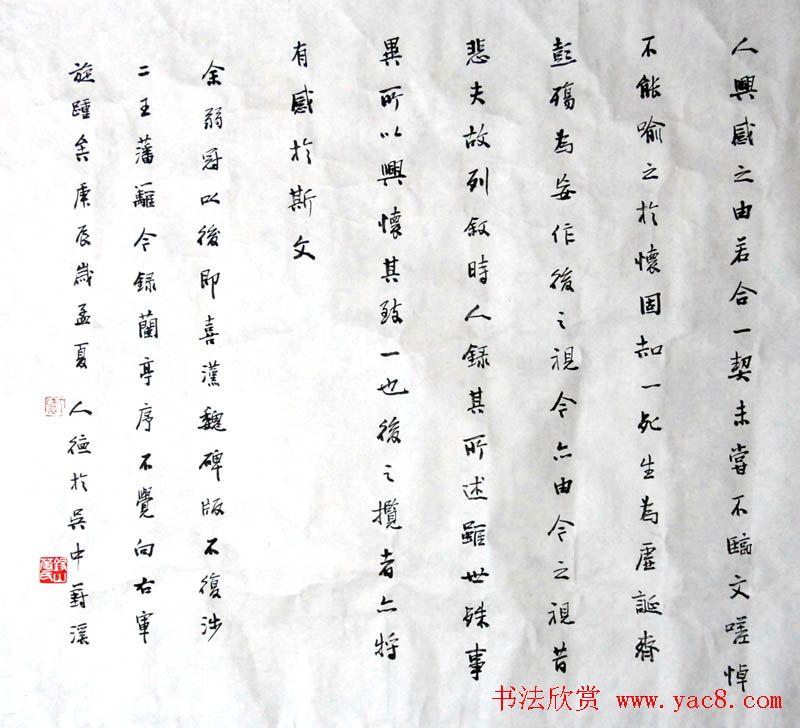 人興感之由若合一契未嘗不臨文嗟悼
不能喻之於懷固知一死生為虛誕齊
彭殤為妄作後之視今亦由今之視昔
悲夫故列敘時人錄其所述雖世殊事
異所以興懷其致一也後之攬者亦將
有感於斯文
余弱冠以後即喜漢魏碑版不復涉
二王藩籬今録蘭亭序不覺向右軍
旋踵矣庚辰歲孟夏 人德於吳中葑溪
书法欣赏 www.yac8.com